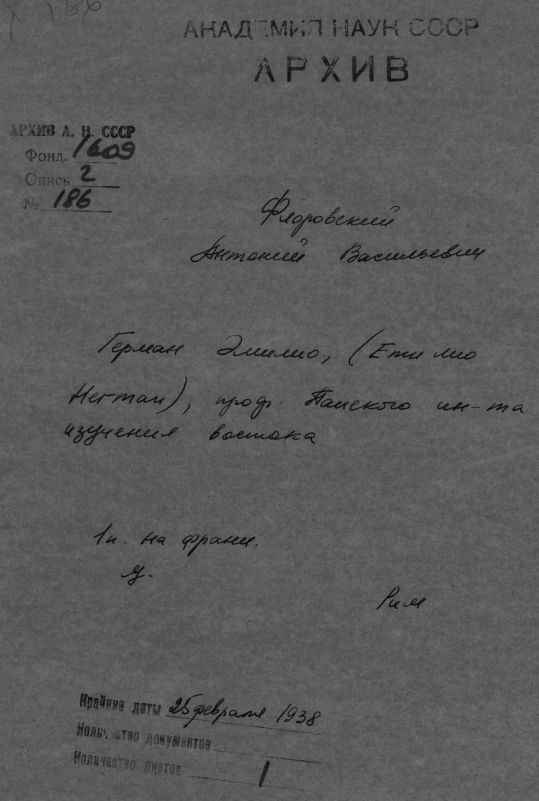 186
АКАДЕМИЯ НАУК СССР
АРХИВ
АРХИВ А. Н. СССР
Фонд. 1609
Опись 2
№ 186
Флоровский
Антоний Васильевич
Герман Эмилио, (Emилио
Herman), проф. Папского ин-та
изучения востока
1п. на франц.
я.
Рим
Крайние даты 25 февраля 1938
Количество документов
Количество листов 1